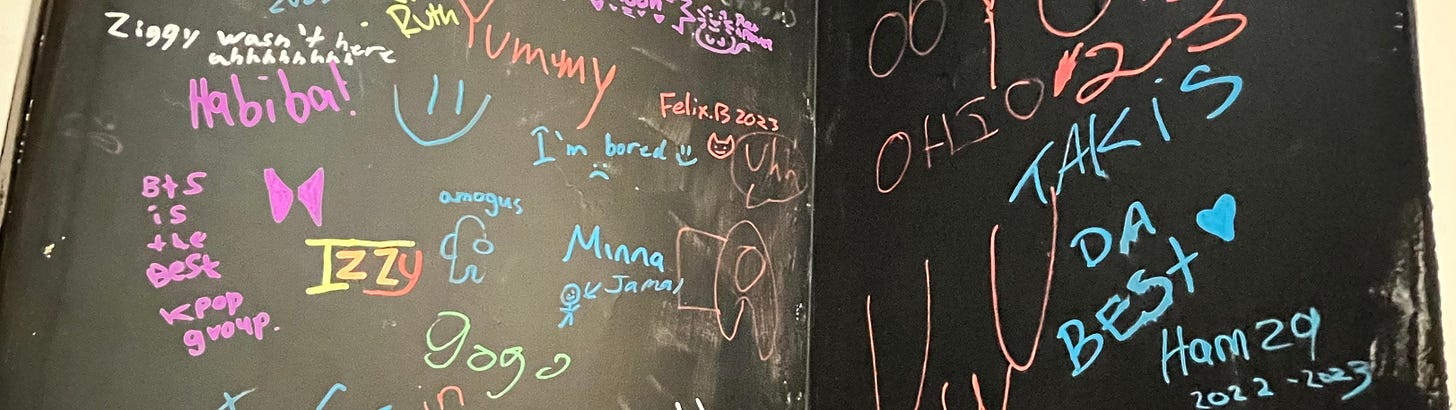 Ziggy wasn't here
ahhhhhhhh
Ruth
Yummy
Habiba!
Felix.B 2023
I'm bored
Uhh
BtS
is
the
BeSt
Kpop
group.
IzZy
amogus
Minna
Jamal
gogo
OHIO
23
TAKiS
DA
BEST
Hamza
2022-2023